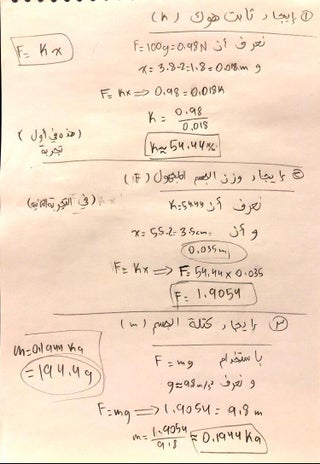 ① إيجاد ثابت هوك (K)
F = Kx
نعرف أن F=100g=0.98N
و x = 3.8-2=1.8=0.018m
F = Kx ⟹ 0.98=0.018K
K = 0.98/0.018
(هذه في أول تجربة)
K≈54.44 N/m
② إيجاد وزن الجسم المجهول (F)
نعرف أن K=54.44 (في التجربة الثانية)
و أن x = 5.5-2=3.5cm=
0.035m
F = Kx ⟹ F=54.44 x 0.035
F= 1.9054
③ إيجاد كتلة الجسم (m)
باستخدام F = mg
و نعرف g≈9.8 m/s²
F=mg ⟹ 1.9054 = 9.8 m
m = 1.9054/9.8 ≈ 0.1944 Kg
m=0.1944 Kg
=194.4g